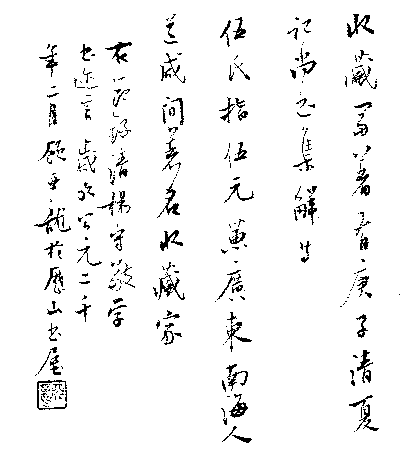 收藏富著有庚子清夏
記尚書集解等
伍氏指伍元蕙廣東南海人
道咸間著名收藏家
右節錄清楊守敬學
書邇言歲次公元二千
年二月顧亞龍於歷山書屋